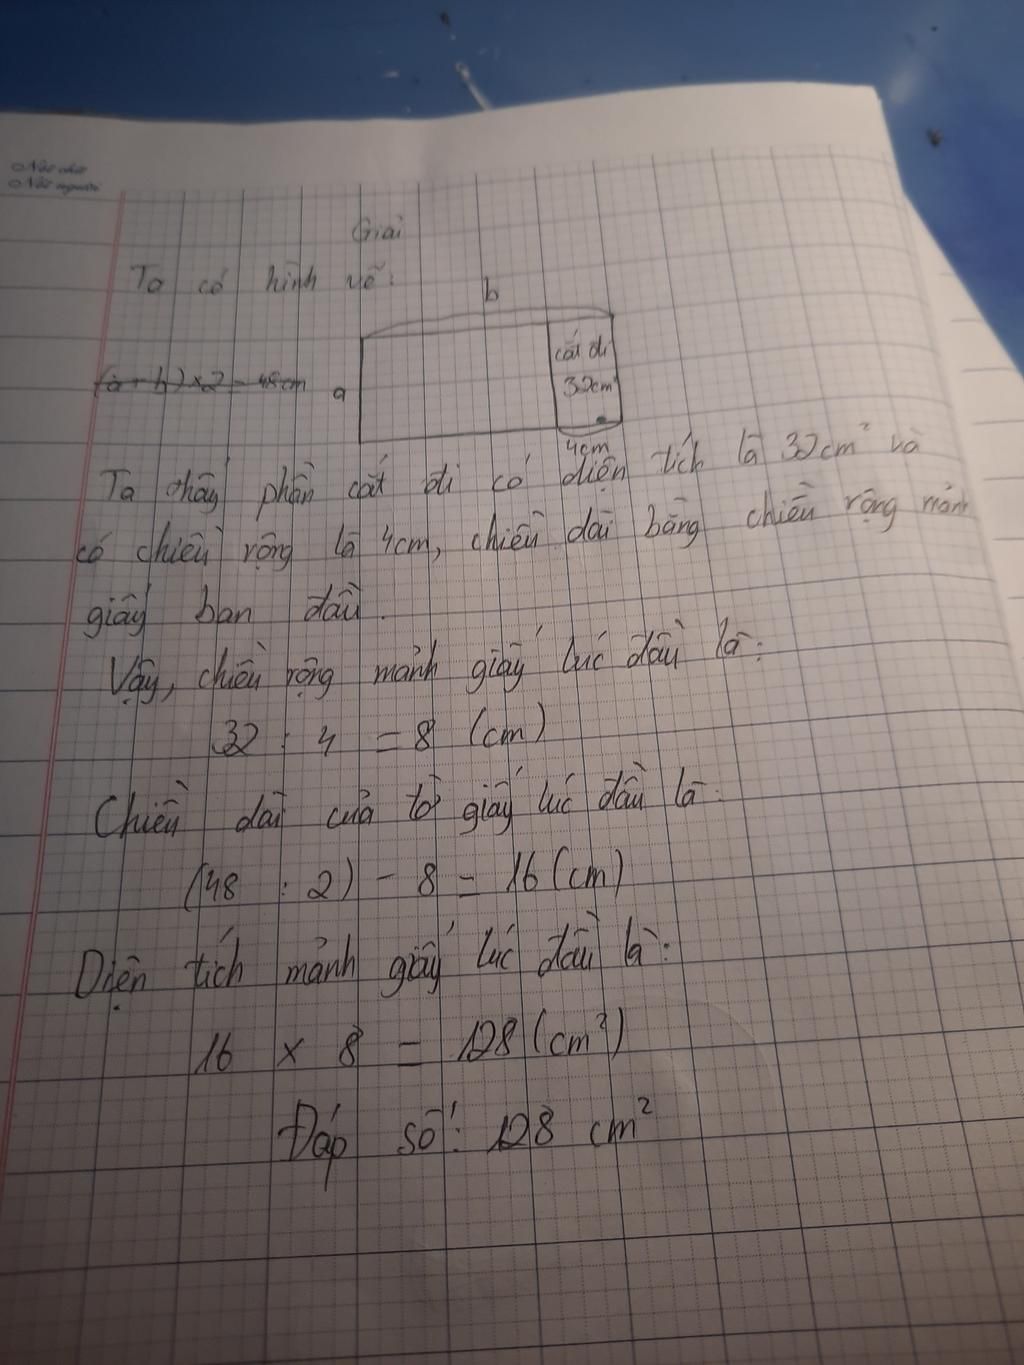 Giải
Ta có hình vẽ:
b
(a + b) x 2 = 48cm
a
cắt đi
32cm²
4cm
Ta thấy phần cắt đi có diện tích là 32cm² và
có chiều rộng là 4cm, chiều dài bằng chiều rộng mảnh
giấy ban đầu.
Vậy, chiều rộng mảnh giấy lúc đầu là:
32 : 4 = 8 (cm)
Chiều dài của tờ giấy lúc đầu là:
(48 : 2) - 8 = 16 (cm)
Diện tích mảnh giấy lúc đầu là:
16 x 8 = 128 (cm²)
Đáp số: 128 cm²